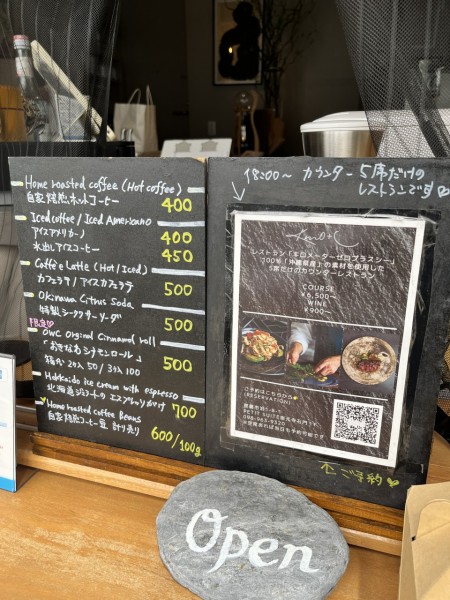 Home roasted coffee (Hot coffee)
自家焙煎ホットコーヒー 400
Iced coffee / Iced Americano
アイスアメリカーノ 400
水出しアイスコーヒー 450
Caffe'e Latte (Hot/Iced)
カフェラテ/アイスカフェラテ 500
Okinawa Citrus Soda
特製シークヮーサーソーダ 500
OWC Original Cinnamon roll
「おきなわシナモンロール」 500
Hokkaido ice cream with espresso
北海道ジェラートのエスプレッソがけ 700
Home roasted Coffee Beans
自家焙煎コーヒー豆 計り売り 600/100g
18:00〜 カウンター 5席だけの
レストランです
レストラン「キロメーターゼロブラスシー」
100%「沖縄県産」の素材を使用した
5席だけのカウンターレストラン
COURSE
¥6,500〜
WINE
¥900〜
ご予約はこちらから
(RESERVATION)
ご予約
Open